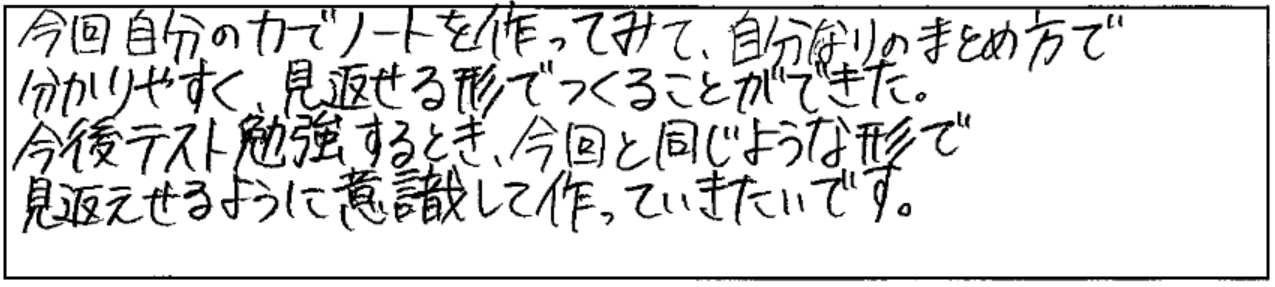 今回自分の力でノートを作ってみて、自分なりのまとめ方で
分かりやすく、見返せる形でつくることができた。
今後テスト勉強するとき、今回と同じような形で
見返えせるように意識して作っていきたいです。